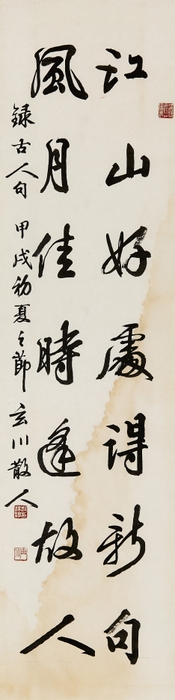 江山好處得新句
風月佳時逢故人
錄古人句 甲戌初夏之節 玄川散人